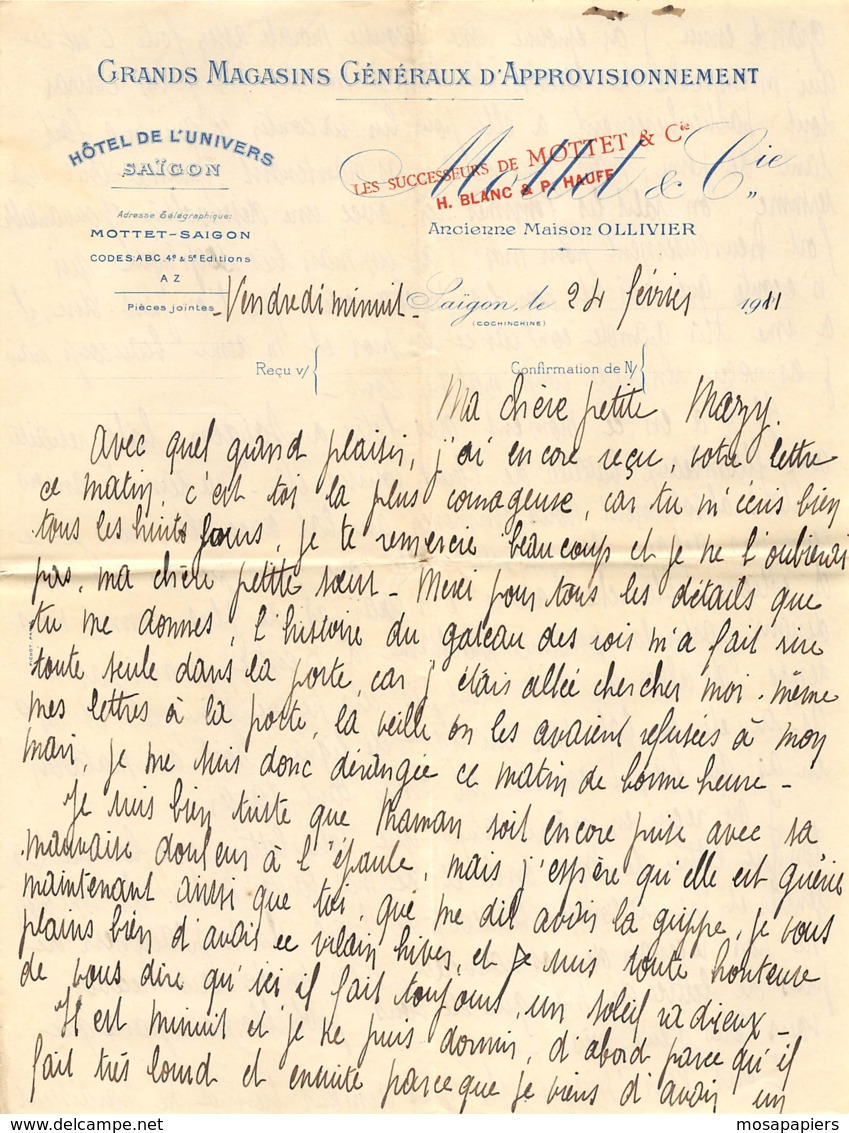 GRANDS MAGASINS GÉNÉRAUX D'APPROVISIONNEMENT
HÔTEL DE L'UNIVERS
SAÏGON
Mottet & Cie
LES SUCCESSEURS DE MOTTET & Cie
H. BLANC & P. HAUFF
Ancienne Maison OLLIVIER
Adresse Télégraphique:
MOTTET-SAIGON
CODES: ABC. 4e & 5e Editions
A Z
Pièces jointes
Vendredi minuit - Saïgon, le 24 février 1911
(COCHINCHINE)
Reçu v/ Confirmation de N/
Ma chère petite Mazy.
Avec quel grand plaisir, j'ai encore reçu, votre lettre
ce matin, c'est toi la plus courageuse, car tu m'écris bien
tous les huits jours, je te remercie beaucoup et je ne l'oublierai
pas, ma chère petite sœur - Merci pour tous les détails que
tu me donnes, l'histoire du gateau des rois m'a fait rire
toute seule dans la porte, car j'étais allée chercher moi-même
mes lettres à la porte, la veille on les avaient refusées à mon
mari, je me suis donc dérangée ce matin de bonne heure -
Je suis bien triste que Maman soit encore prise avec sa
mauvaise douleur à l'épaule, mais j'espère qu'elle est guérie
maintenant ainsi que toi, que me dit avoir la grippe, je vous
plains bien d'avoir ce vilain hiver, et je suis toute honteuse
de vous dire qu'ici il fait toujours un soleil radieux -
Il est minuit et je ne puis dormir, d'abord parce qu'il
fait très lourd et ensuite parce que je viens d'avoir un
mosapapiers